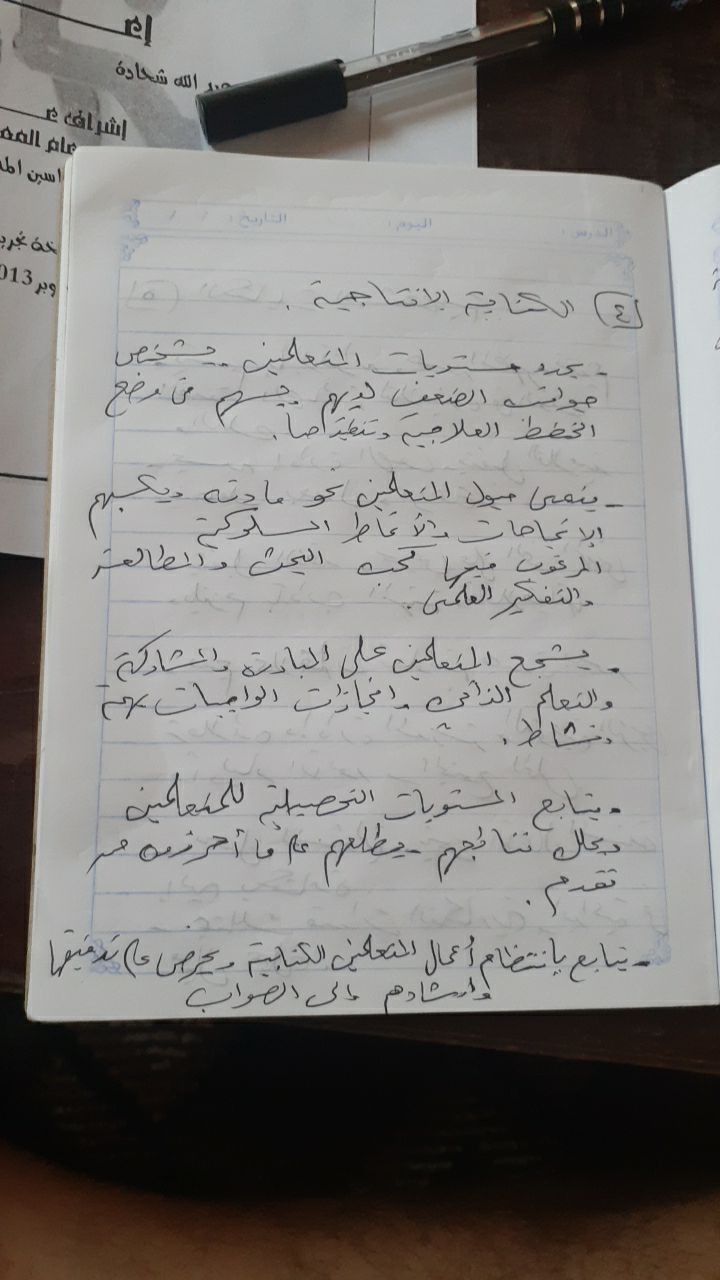 إع
عبد الله شحادة
إشراف
عام
اسين
خة تجريـ
وبر 2013
الدرس : اليوم : التاريخ : / /
٤ الكفاية الإنتاجية .
- يحدد مستويات المتعلمين ويشخص
جوانب الضعف لديهم ويسهم في وضع
الخطط العلاجية وتنفيذها.
- ينمى ميول المتعلمين نحو مادته ويكسبهم
الإتجاهات والأنماط السلوكية
المرغوب فيها كحب البحث والمطالعة
والتفكير العلمى.
- يشجع المتعلمين على المبادرة والمشاركة
والتعلم الذاتى وانجازات الواجبات بهمة
ونشاط .
- يتابع المستويات التحصيلية للمتعلمين
ويحلل نتائجهم ويطلعهم على ما أحرزوه من
تقدم .
- يتابع بإنتظام أعمال المتعلمين الكتابية ويحرص على تدقيقها
وارشادهم إلى الصواب